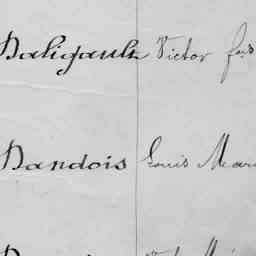 Daligault Victor f.ois
Dandois Louis Mari